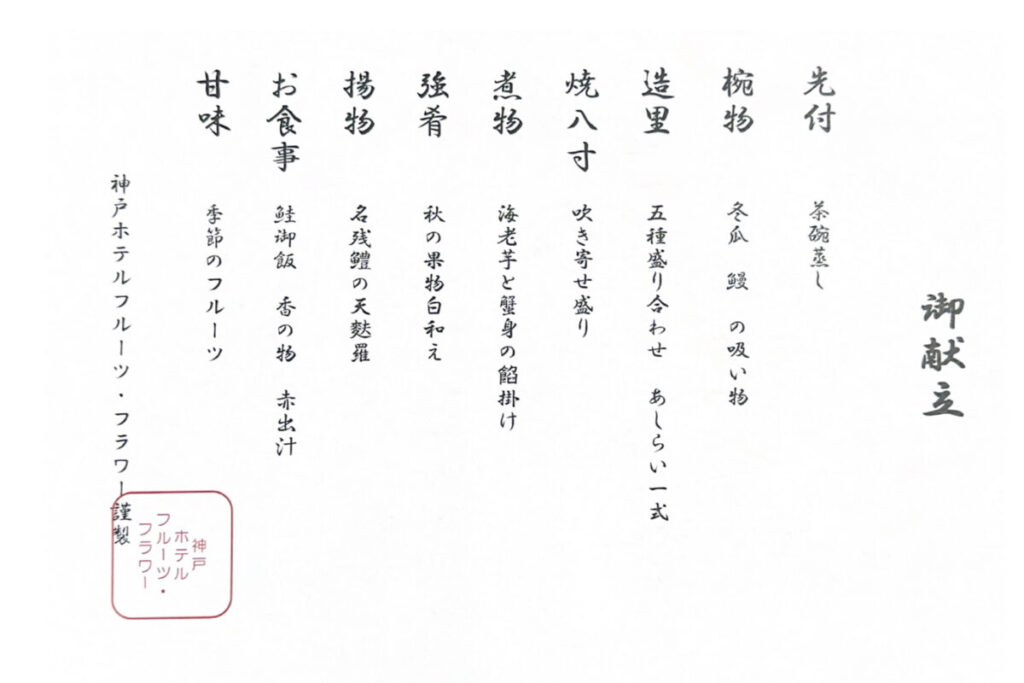 御献立
先付
茶碗蒸し
椀物
冬瓜　鰻　の吸い物
造里
五種盛り合わせ　あしらい一式
焼八寸
吹き寄せ盛り
煮物
海老芋と蟹身の餡掛け
強肴
秋の果物白和え
揚物
名残鱧の天麩羅
お食事
鮭御飯　香の物　赤出汁
甘味
季節のフルーツ
神戸ホテルフルーツ・フラワー謹製
神戸
ホテル
フルーツ・
フラワー